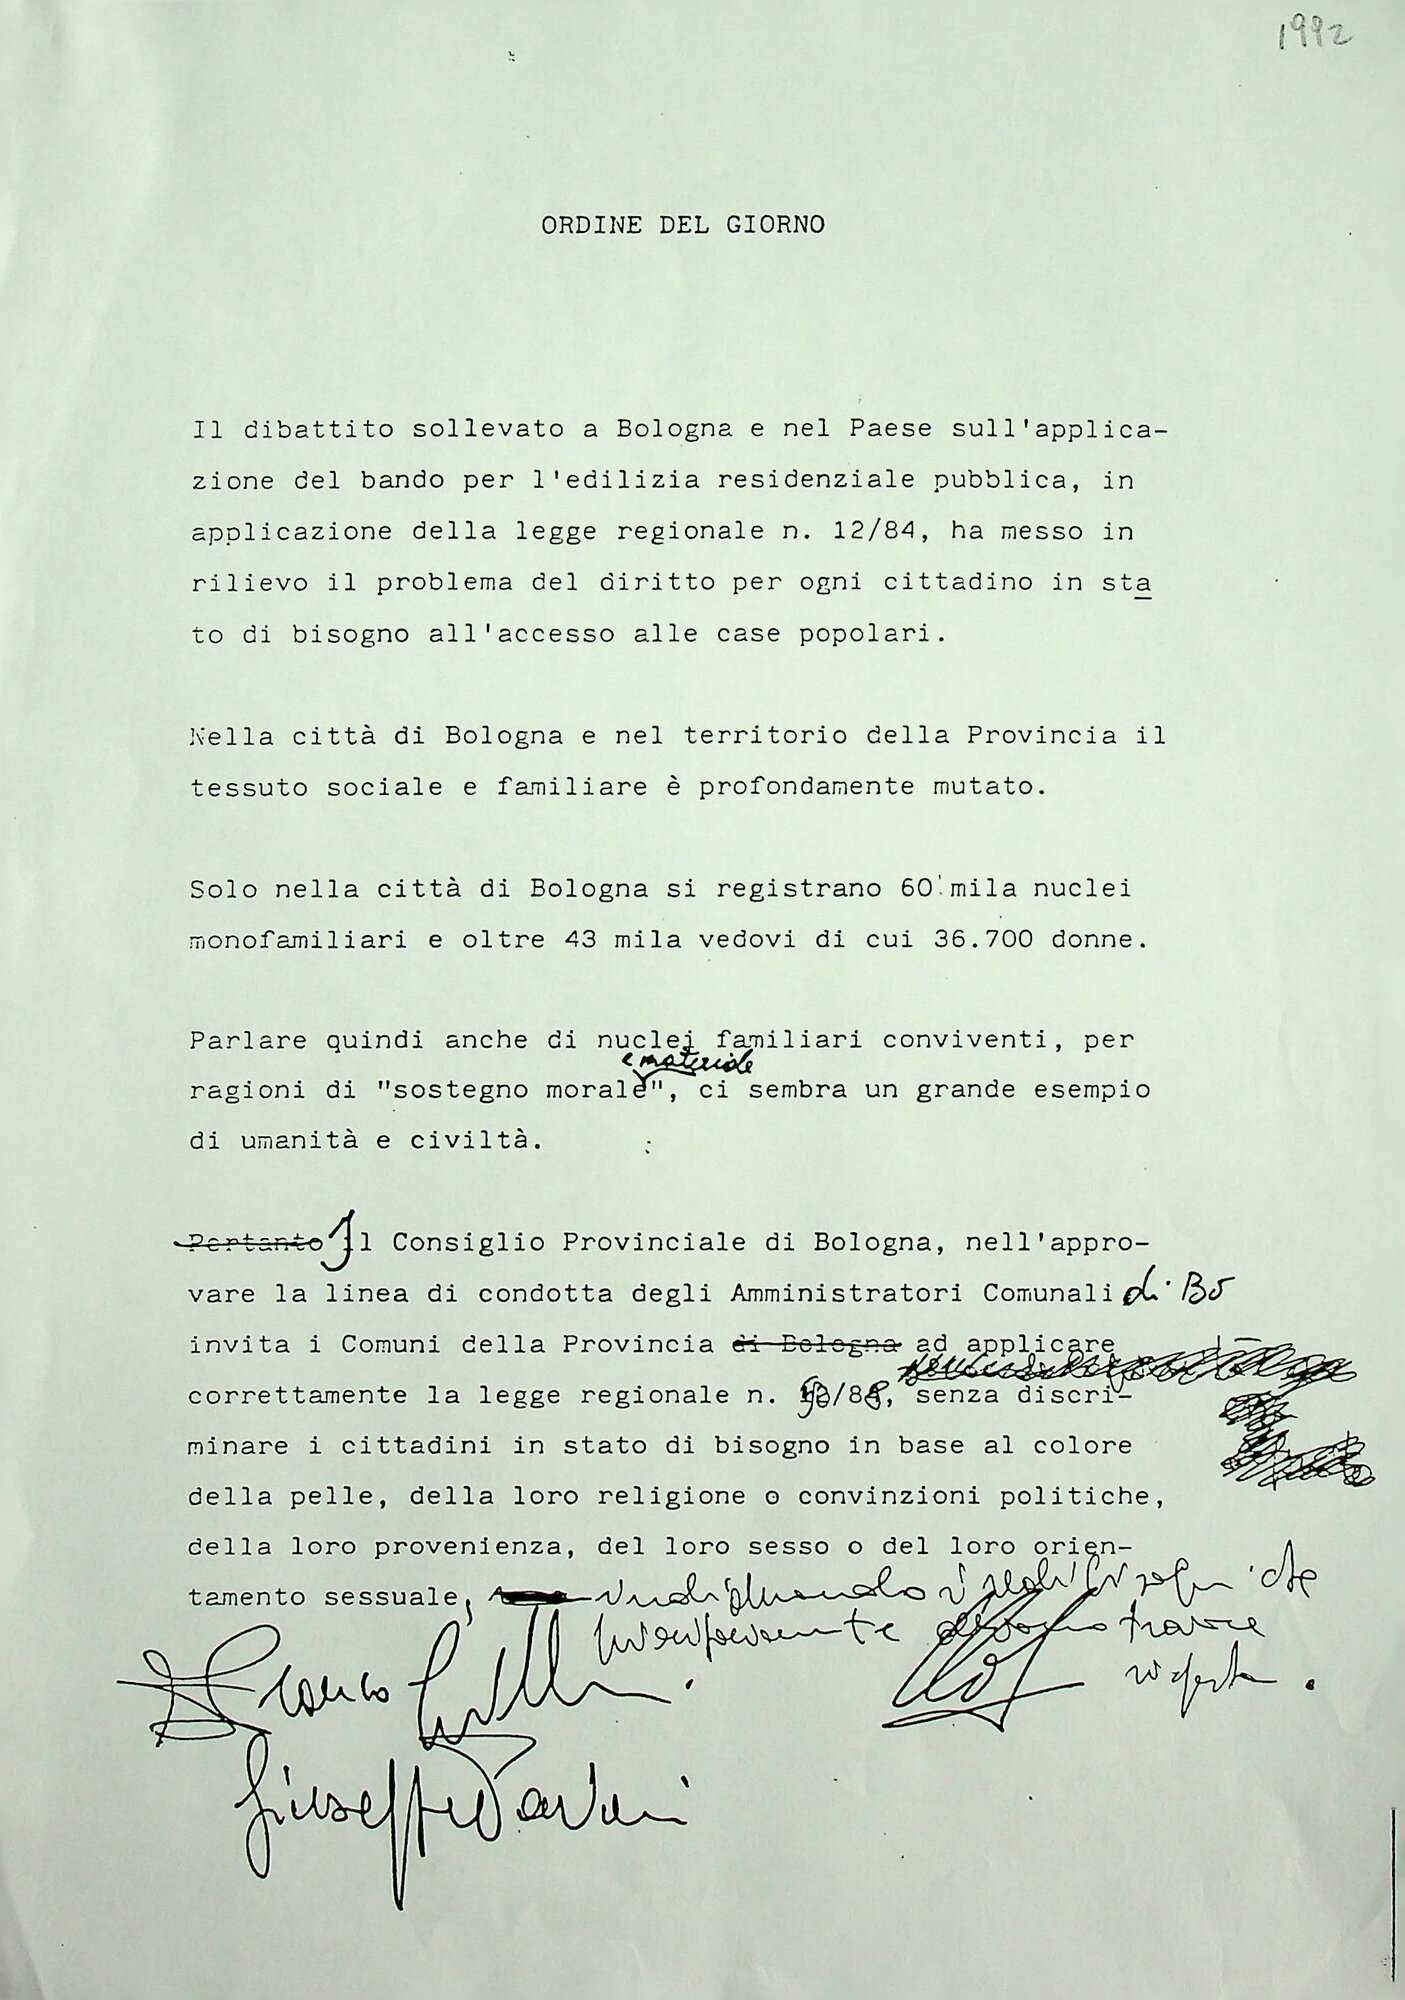 1992
ORDINE DEL GIORNO
Il dibattito sollevato a Bologna e nel Paese sull'applica-
zione del bando per l'edilizia residenziale pubblica, in
applicazione della legge regionale n. 12/84, ha messo in
rilievo il problema del diritto per ogni cittadino in sta
to di bisogno all'accesso alle case popolari.
Nella città di Bologna e nel territorio della Provincia il
tessuto sociale e familiare è profondamente mutato.
Solo nella città di Bologna si registrano 60 mila nuclei
monofamiliari e oltre 43 mila vedovi di cui 36.700 donne.
Parlare quindi anche di nuclei familiari conviventi, per
e materiale
ragioni di "sostegno morale", ci sembra un grande esempio
di umanità e civiltà.
Pertanto Il Consiglio Provinciale di Bologna, nell'appro-
vare la linea di condotta degli Amministratori Comunali di Bo
invita i Comuni della Provincia di Bologna ad applicare
correttamente la legge regionale n. /8, senza discri-
minare i cittadini in stato di bisogno in base al colore
della pelle, della loro religione o convinzioni politiche,
della loro provenienza, del loro sesso o del loro orien-
tamento sessuale, individuando i reali bisogni che
trovare
risposta.
Franco
Giuseppe